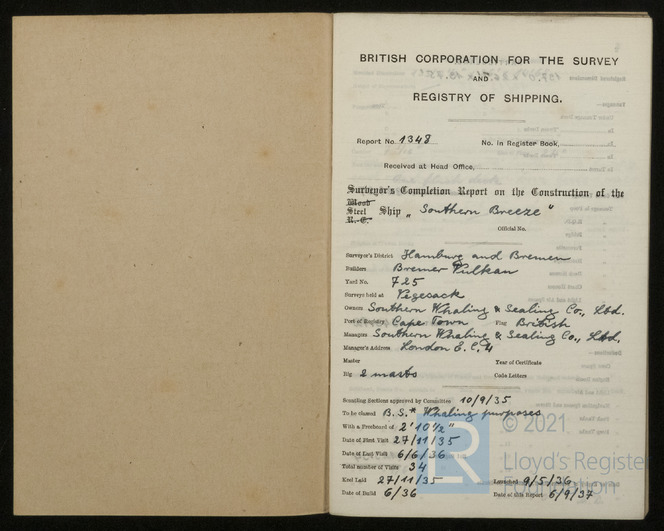 BRITISH CORPORATION FOR THE SURVEY
AND
REGISTRY OF SHIPPING.
Report No. 1348 No. in Register Book,
Received at Head Office,
Surveyor's Completion Report on the Construction of the
Wood
Steel Ship „ Southern Breeze "
R.-C.
Official No.
Surveyor's District Hamburg and Bremen
Builders Bremer Vulkan
Yard No. 725
Surveys held at Vegesack
Owners Southern Whaling & Sealing Co., Ltd.
Port of Registry Cape Town Flag British
Managers Southern Whaling & Sealing Co., Ltd.
Manager's Address London E.C. 4
Master Year of Certificate
Rig 2 masts Code Letters
Scantling Sections approved by Committee 10/9/35
To be classed B.S.* Whaling purposes
With a Freeboard of 2' 10½"
Date of First Visit 27/11/35
Date of Last Visit 6/6/36
Total number of Visits 34
Keel Laid 27/11/35 Launched 9/5/36
Date of Build 6/36 Date of this Report 6/9/37
LR
© 2021
Lloyd's Register
Foundation